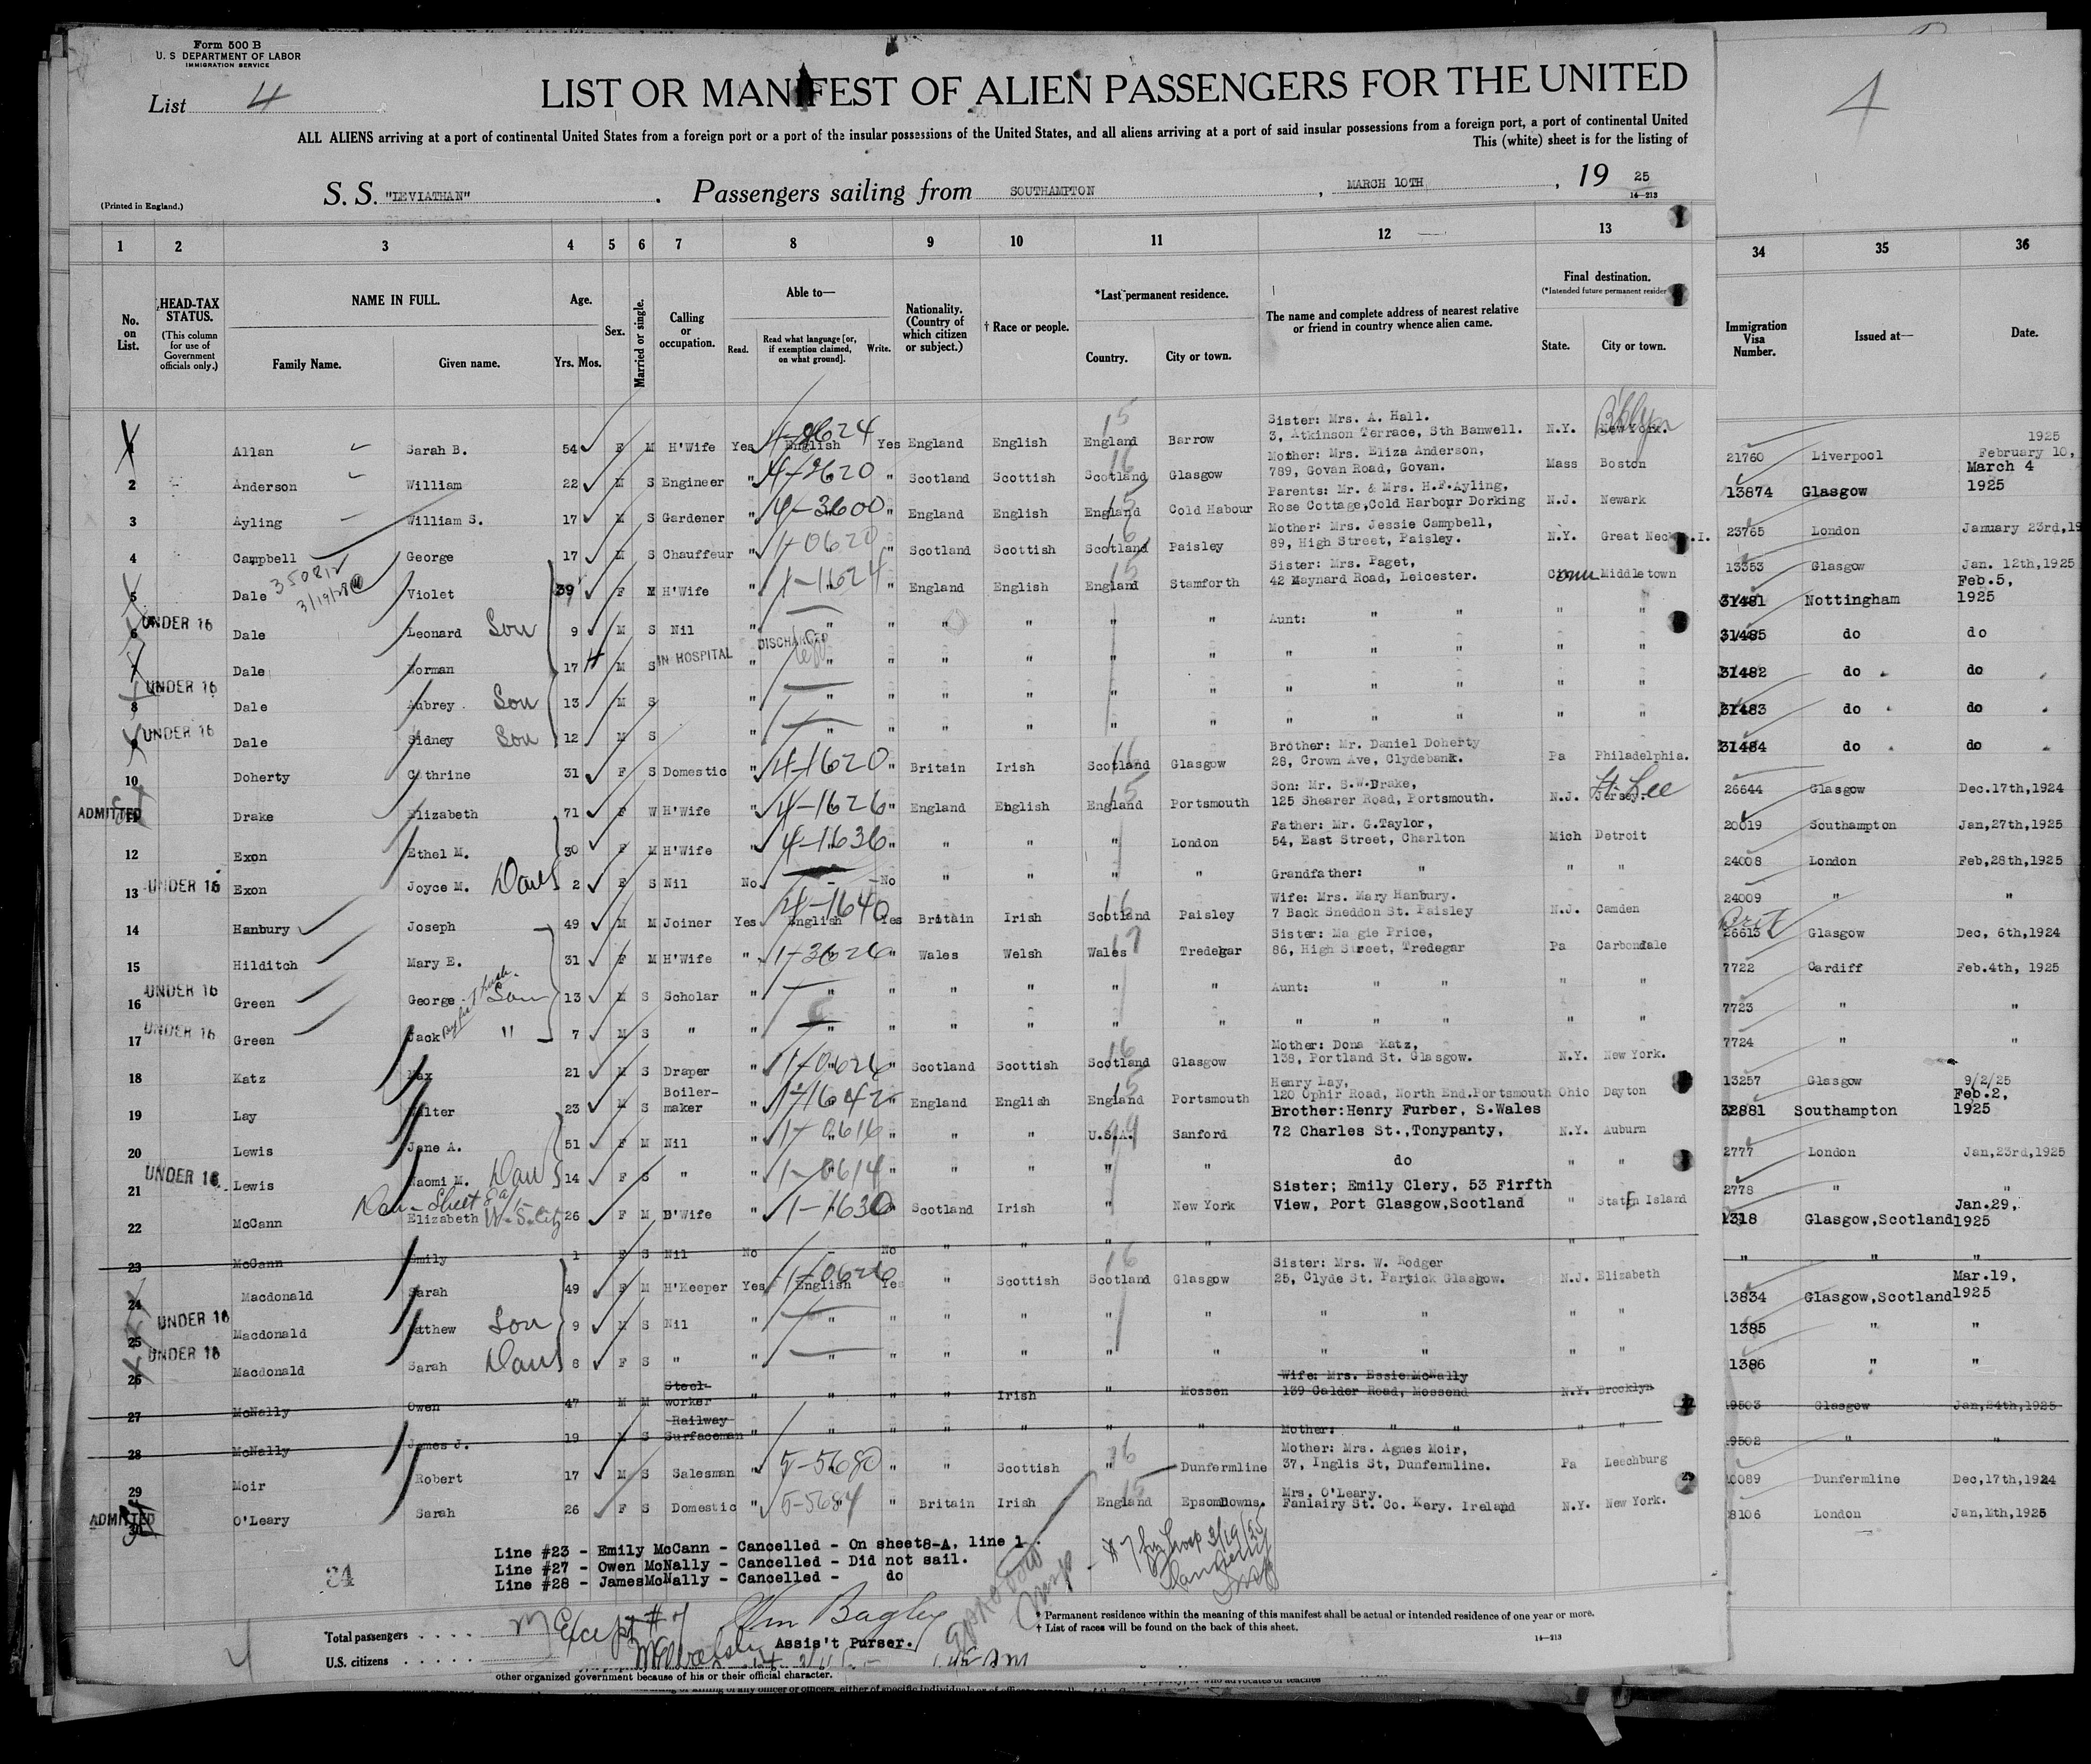 Form 500 B
U. S DEPARTMENT OF LABOR
IMMIGRATION SERVICE
List 4
4
LIST OR MANIFEST OF ALIEN PASSENGERS FOR THE UNITED
ALL ALIENS arriving at a port of continental United States from a foreign port or a port of the insular possessions of the United States, and all aliens arriving at a port of said insular possessions from a foreign port, a port of continental United
This (white) sheet is for the listing of
(Printed in England.)
S. S. "LEVIATHAN" . Passengers sailing from SOUTHAMPTON , MARCH 10TH , 19 25
14-213
1 2 3 4 5 6 7 8 9 10 11 12 13 34 35 36
No. on List.
HEAD-TAX STATUS.
(This column for use of Government officials only.)
NAME IN FULL.
Family Name. Given name.
Age.
Yrs. Mos.
Sex.
Married or single.
Calling or occupation.
Able to—
Read. Read what language [or, if exemption claimed, on what ground]. Write.
Nationality. (Country of which citizen or subject.)
† Race or people.
*Last permanent residence.
Country. City or town.
The name and complete address of nearest relative or friend in country whence alien came.
Final destination.
(*Intended future permanent residen
State. City or town.
Immigration Visa Number.
Issued at—
Date.
1 Allan Sarah B. 54 F M H'Wife Yes English 4-8624 Yes England English England 15 Barrow Sister: Mrs. A. Hall. 3, Atkinson Terrace, Sth Banwell. N.Y. New York. B'klyn 21760 Liverpool February 10, 1925
2 Anderson William 22 M S Engineer " 4-2620 " Scotland Scottish Scotland 16 Glasgow Mother: Mrs. Eliza Anderson, 789, Govan Road, Govan. Mass Boston 13874 Glasgow March 4 1925
3 Ayling William S. 17 M S Gardener " 4-3600 " England English England 15 Cold Habour Parents: Mr. & Mrs. H.F.Ayling, Rose Cottage,Cold Harbour Dorking N.J. Newark 23765 London January 23rd,19
4 Campbell George 17 M S Chauffeur " 1-0620 " Scotland Scottish Scotland 16 Paisley Mother: Mrs. Jessie Campbell, 89, High Street, Paisley. N.Y. Great Neck .I. 13353 Glasgow Jan. 12th,1925
5 Dale 350812 3/19/28 Violet 39 F M H'Wife " 1-1624 " England English England 15 Stamforth Sister: Mrs. Paget, 42 Maynard Road, Leicester. Conn Middletown 31481 Nottingham Feb.5, 1925
6 UNDER 16 Dale Leonard Son 9 M S Nil " " " " " " " Aunt: " " " " 31485 do do
7 Dale Norman 17 M S IN HOSPITAL " DISCHARGED " " " " " " " " " " 31482 do do
8 UNDER 16 Dale Aubrey Son 13 M S " " " " " " " " " " " " 31483 do do
9 UNDER 16 Dale Sidney Son 12 M S " " " " " " " " " " " " 31484 do do
10 Doherty Cathrine 31 F S Domestic " 4-1620 " Britain Irish Scotland 16 Glasgow Brother: Mr. Daniel Doherty 28, Crown Ave, Clydebank. Pa Philadelphia. 26644 Glasgow Dec.17th,1924
ADMITTED 11 Drake Elizabeth 71 F W H'Wife " 4-1626 " England English England 15 Portsmouth Son: Mr. S.W.Drake, 125 Shearer Road, Portsmouth. N.J. Jersey. Ft. Lee 20019 Southampton Jan,27th,1925
12 Exon Ethel M. 30 F M H'Wife " 4-1636 " " " " London Father: Mr. G.Taylor, 54, East Street, Charlton Mich Detroit 24008 London Feb,28th,1925
13 UNDER 16 Exon Joyce M. Dau 2 F S Nil No - -No " " " " Grandfather: " " " 24009 " "
14 Hanbury Joseph 49 M M Joiner Yes English 4-1640 Yes Britain Irish Scotland 16 Paisley Wife: Mrs. Mary Hanbury. 7 Back Sneddon St. Paisley N.J. Camden 26613 Glasgow Dec, 6th,1924
15 Hilditch Mary E. 31 F M H'Wife " 1-3626 " Wales Welsh Wales 17 Tredegar Sister: Maggie Price, 86, High Street, Tredegar Pa Carbondale 7722 Cardiff Feb.4th, 1925
16 UNDER 16 Green George Son 13 M S Scholar " " " " " " " Aunt: " " " " 7723 " "
17 UNDER 16 Green Jack By first husb. " 7 M S " " " " " " " " " " " " " 7724 " "
18 Katz Max 21 M S Draper " 1-0626 " Scotland Scottish Scotland 16 Glasgow Mother: Dona Katz, 138, Portland St. Glasgow. N.Y. New York. 13257 Glasgow 9/2/25
19 Lay Walter 23 M S Boiler-maker " 1-1642 " England English England 15 Portsmouth Henry Lay, 120 Ophir Road, North End.Portsmouth Ohio Dayton 32881 Southampton Feb.2, 1925
20 Lewis Jane A. 51 F M Nil " 1-0616 " " " U.S.A. 99 Sanford Brother:Henry Furber, S.Wales 72 Charles St.,Tonypanty, N.Y. Auburn 2777 London Jan,23rd,1925
21 UNDER 16 Lewis Naomi M. Dau 14 F S " " 1-0614 " " " " " do " " 2778 " "
22 McCann Dau - Sheet 8a/1- U.S. Cit Elizabeth 26 F M H'Wife " 1-1630 " Scotland Irish " New York Sister; Emily Clery, 53 Firfth View, Port Glasgow,Scotland " Staten Island 1318 Glasgow,Scotland Jan.29, 1925
23 McCann Emily 1 F S Nil No - No " " " " " " " " "
24 Macdonald Sarah 49 F M H'Keeper Yes English 1-0626 Yes " Scottish Scotland 16 Glasgow Sister: Mrs. W. Rodger 25, Clyde St. Partick Glasgow. N.J. Elizabeth 13834 Glasgow,Scotland Mar.19, 1925
25 UNDER 16 Macdonald Matthew Son 9 M S Nil " " " " " " " " " " " 1385 " "
26 UNDER 16 Macdonald Sarah Dau 8 F S " " " " " " " " " " " " 1386 " "
27 McNally Owen 47 M M Steel-worker " " " " Irish " Mossen Wife: Mrs. Essie McNally 139 Calder Road, Mossend N.Y. Brooklyn 9503 Glasgow Jan,24th,1925
28 McNally James J. 19 M S Railway Surfaceman " " " " " " " Mother: " " " " 9502 " "
29 Moir Robert 17 M S Salesman " 5-5680 " " Scottish " 16 Dunfermline Mother: Mrs. Agnes Moir, 37, Inglis St, Dunfermline. Pa Leechburg 29 10089 Dunfermline Dec,17th,1924
ADMITTED 30 O'Leary Sarah 26 F S Domestic " 5-5684 " Britain Irish England 15 EpsomDowns. Mrs. O'Leary. Fanlairy St. Co. Kery. Ireland N.Y. New York. 8106 London Jan,1th,1925
Line #23 - Emily McCann - Cancelled - On sheet8-A, line 1.
Line #27 - Owen McNally - Cancelled - Did not sail.
Line #28 - JamesMcNally - Cancelled - do
34
Except #7
Total passengers . . . .
U.S. citizens . . . . . .
Assis't Purser.
* Permanent residence within the meaning of this manifest shall be actual or intended residence of one year or more.
† List of races will be found on the back of this sheet.
14-213
other organized government because of his or their official character.